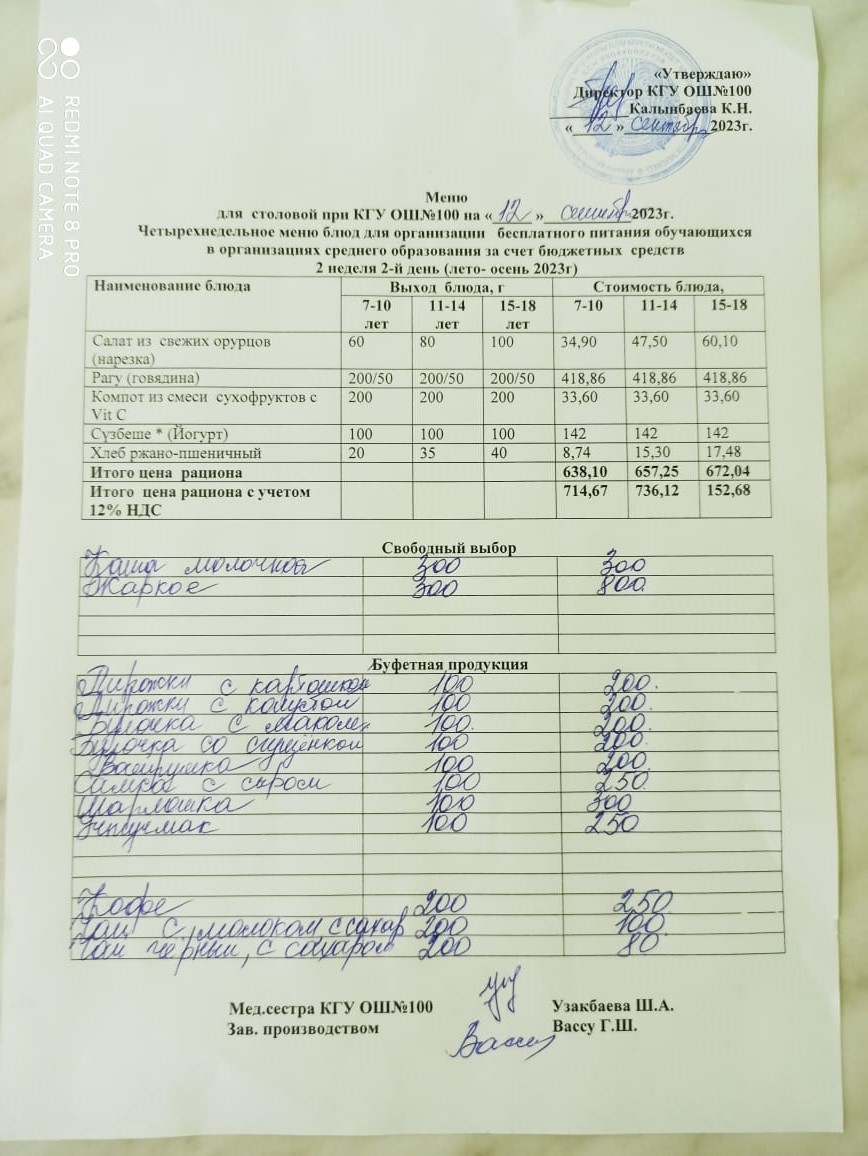 REDMI NOTE 8 PRO
AI QUAD CAMERA
«Утверждаю»
Директор КГУ ОШ.№100
Калынбаева К.Н.
« 12 » сентябр 2023г.
Меню
для столовой при КГУ ОШ.№100 на « 12 » сентябр 2023г.
Четырехнедельное меню блюд для организации бесплатного питания обучающихся
в организациях среднего образования за счет бюджетных средств
2 неделя 2-й день (лето- осень 2023г)
Наименование блюда Выход блюда, г Стоимость блюда,
7-10 лет 11-14 лет 15-18 лет 7-10 11-14 15-18
Салат из свежих орурцов (нарезка) 60 80 100 34,90 47,50 60,10
Рагу (говядина) 200/50 200/50 200/50 418,86 418,86 418,86
Компот из смеси сухофруктов с Vit C 200 200 200 33,60 33,60 33,60
Сүзбеше * (Йогурт) 100 100 100 142 142 142
Хлеб ржано-пшеничный 20 35 40 8,74 15,30 17,48
Итого цена рациона 638,10 657,25 672,04
Итого цена рациона с учетом 12% НДС 714,67 736,12 152,68
Свободный выбор
Каша молочная 300 300
Жаркое 300 800
Буфетная продукция
Пирожки с картошкой 100 200.
Пирожки с капустой 100 200.
Булочка с маком 100. 200.
Булочка со сгущенкой 100 200.
Ватрушка 100 200
Самса с сыром 100 250.
Шарлотка 100 300
Учпучмак 100 250
Кофе 200 250
Чай с молоком с сахар 200 100.
Чай черный, с сахаром 200 80
Мед.сестра КГУ ОШ.№100 Узакбаева Ш.А.
Зав. производством Вассу Г.Ш.